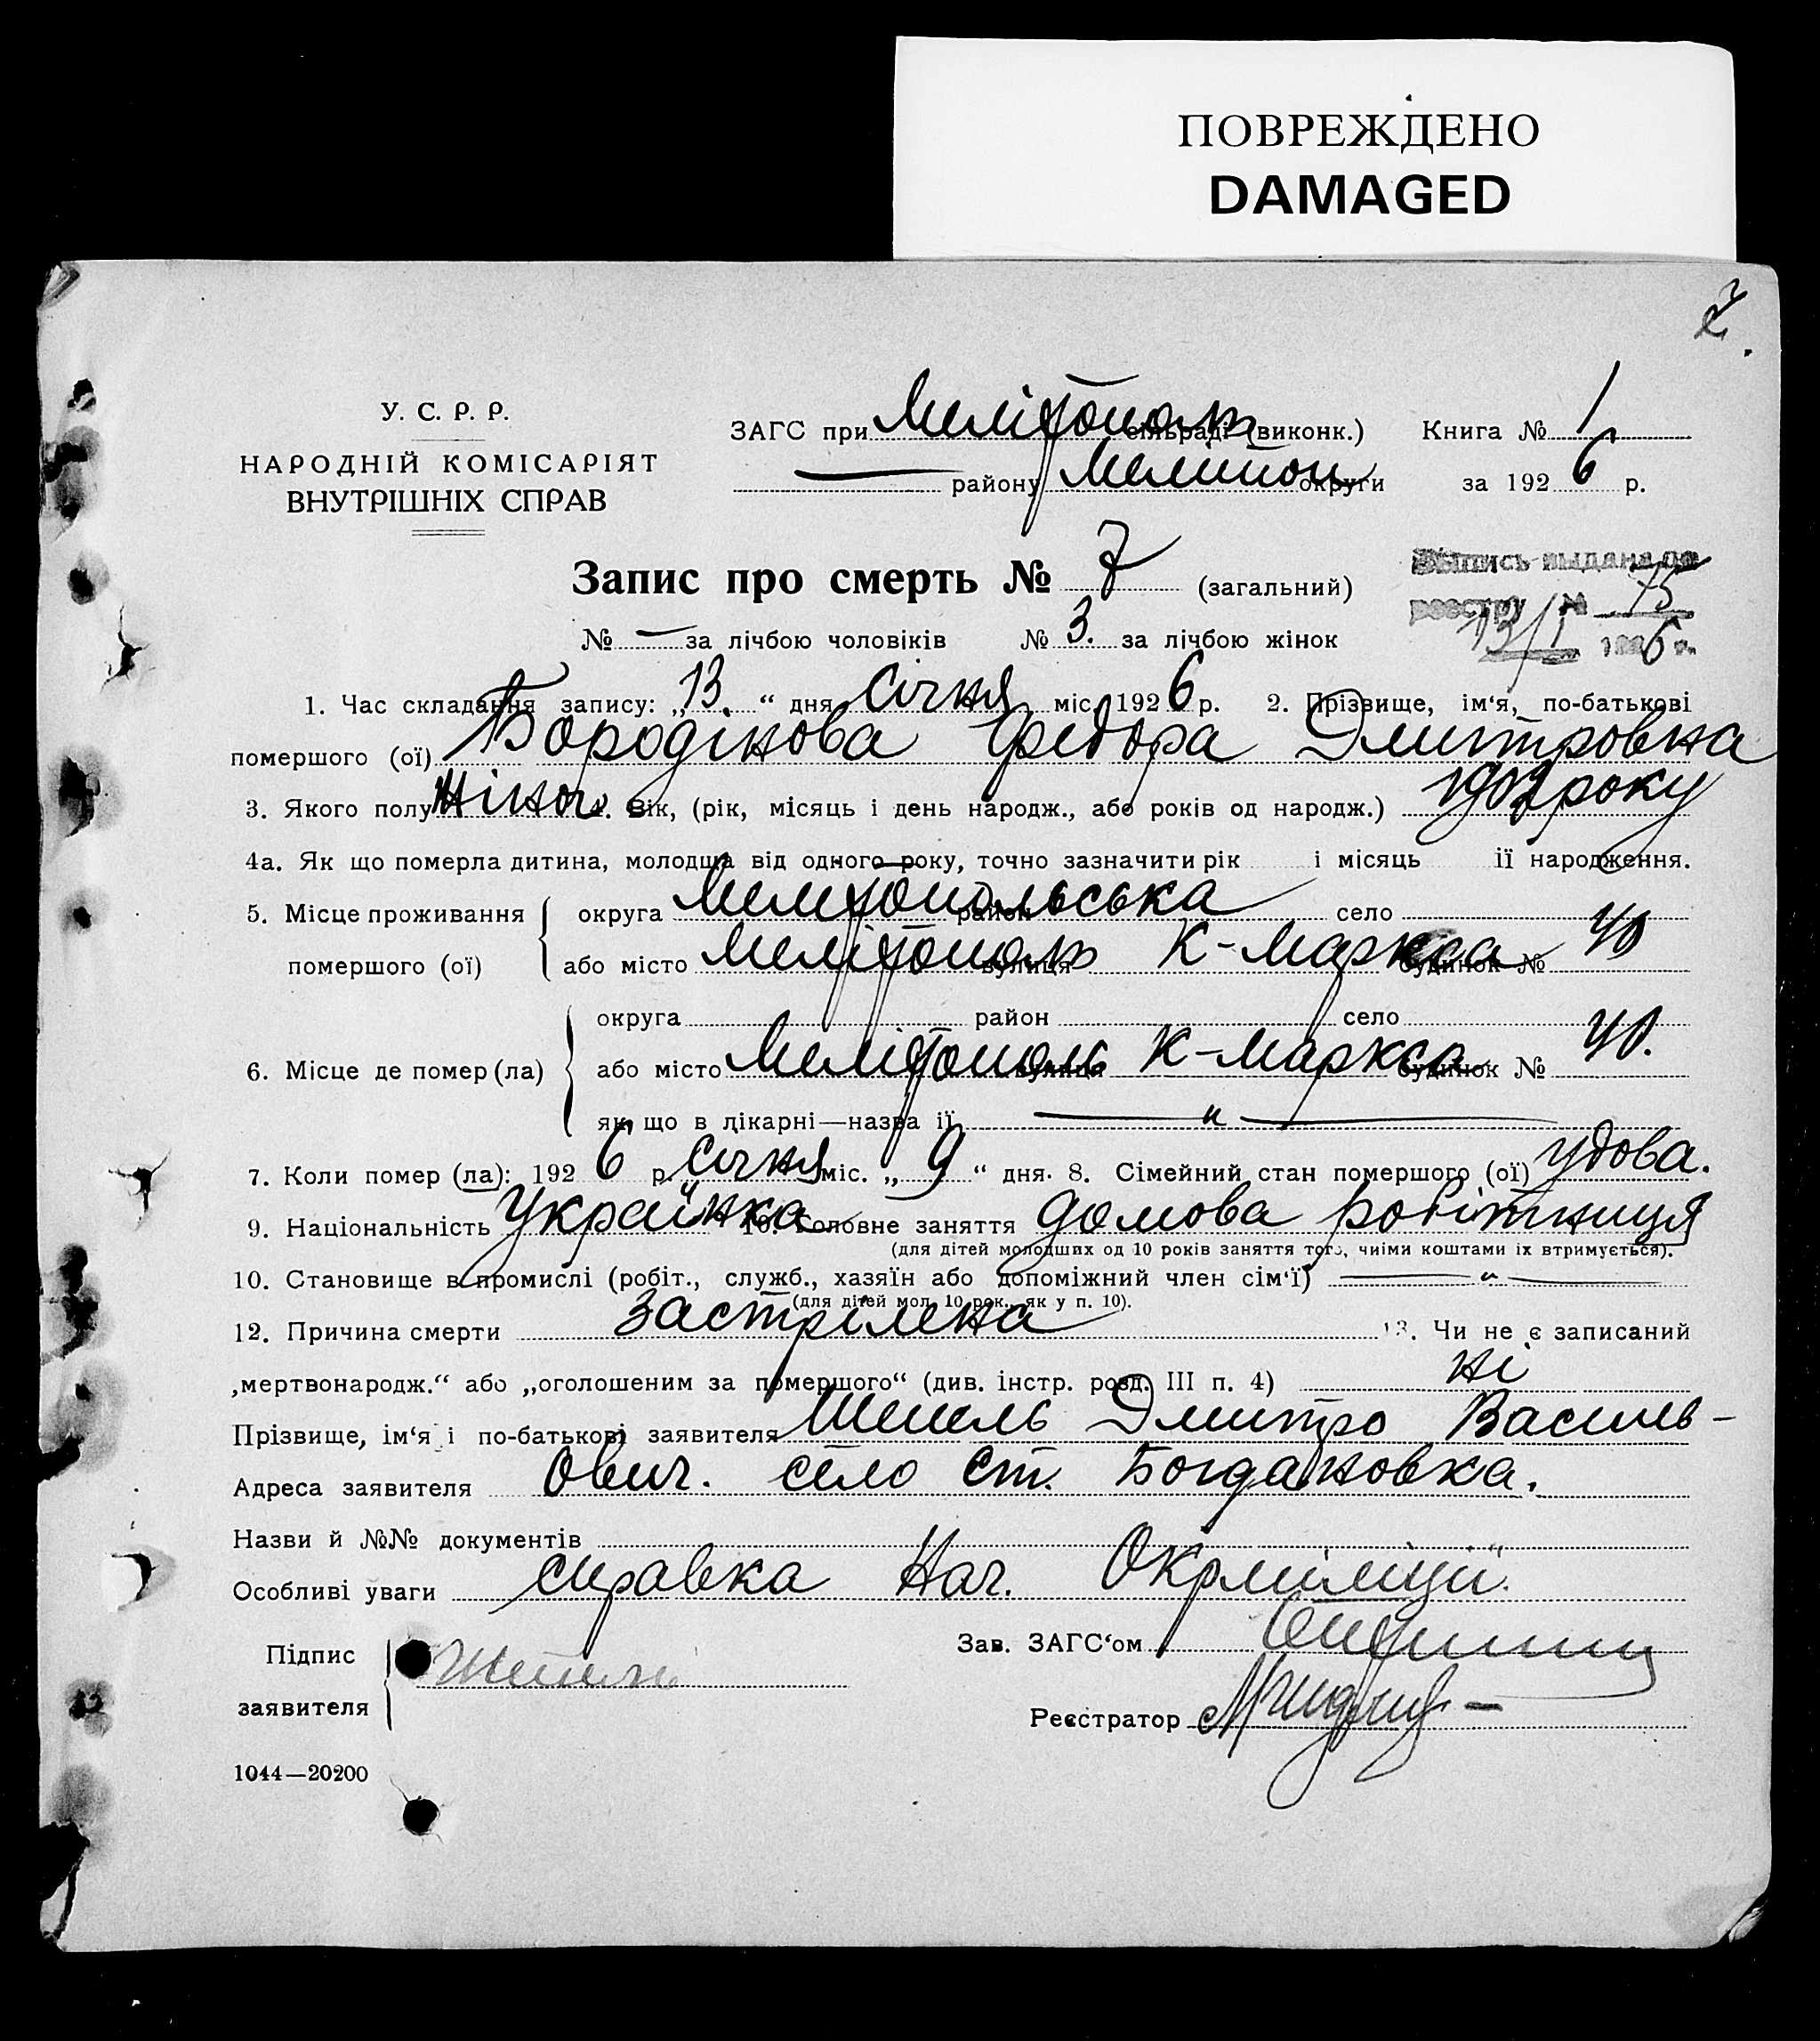 ПОВРЕЖДЕНО
DAMAGED
У. С. Р. Р.
НАРОДНІЙ КОМІСАРІЯТ
ВНУТРІШНІХ СПРАВ
ЗАГС при Мелітополь сільраді (виконк.) Книга № 1
— району Мелитоп округи за 1926 р.
Запис про смерть № 7 (загальний)
Выпись выдана по
реестру № 75
13/I 1926 г.
№ — за лічбою чоловіків № 3. за лічбою жінок
1. Час складання запису: „13.“ дня Січня міс. 1926 р. 2. Прізвище, ім‘я, по-батькові
помершого (ої) Бородінова Федора Дмитровна
3. Якого полу Жіноч. 4. Вік, (рік, місяць і день народж., або років од народж.) року
4а. Як що померла дитина, молодша від одного року, точно зазначити рік — і місяць її народження.
5. Місце проживання округа Мелітопольська район село
помершого (ої) або місто Мелітополь вулиця К-Маркса будинок № 40
округа район село
6. Місце де помер (ла) або місто Мелітополь вулиця К-Маркса будинок № 40.
як що в лікарні—назва її — „ —
7. Коли помер (ла): 1926 р. Січня міс. „9“ дня. 8. Сімейний стан помершого (ої) удова.
9. Національність Українка 10. Головне заняття домова робітниця
(для дітей молодших од 10 років заняття того, чиїми коштами їх втримується).
10. Становище в промислі (робіт., служб., хазяїн або допоміжний член сім‘ї) — „ —
(для дітей мол. 10 рок., як у п. 10).
12. Причина смерти Застрілена 13. Чи не є записаний
„мертвонародж.“ або „оголошеним за помершого“ (див. інстр. розд. III п. 4) ні
Прізвище, ім‘я і по-батькові заявителя Шепель Дмитро Василь-
Адреса заявителя Ович. село Ст. Богдановка.
Назви й №№ документів
Особливі уваги справка Нач. Окрміліції.
Підпис
заявителя Шепель
Зав. ЗАГС‘ом
Реєстратор
1044—20200